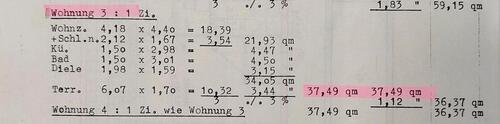 3 ./. 3% 1,83 " 59,15 qm
Wohnung 3 : 1 Zi.
Wohnz. 4,18 x 4,40 = 18,39
+Schl.n.2,12 x 1,67 = 3,54 21,93 qm
Kü. 1,50 x 2,98 = 4,47 "
Bad 1,50 x 3,01 = 4,50 "
Diele 1,98 x 1,59 = 3,15 "
34,05 qm
Terr. 6,07 x 1,70 = 10,32 3,44 " 37,49 qm 37,49 qm
3 ./. 3% 1,12 " 36,37 qm
Wohnung 4 : 1 Zi. wie Wohnung 3 37,49 qm 36,37 qm